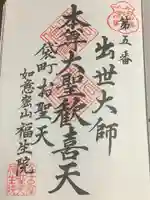 第五番
出世大師
本尊大聖歓喜天
袋町お聖天
如意寳山
福生院